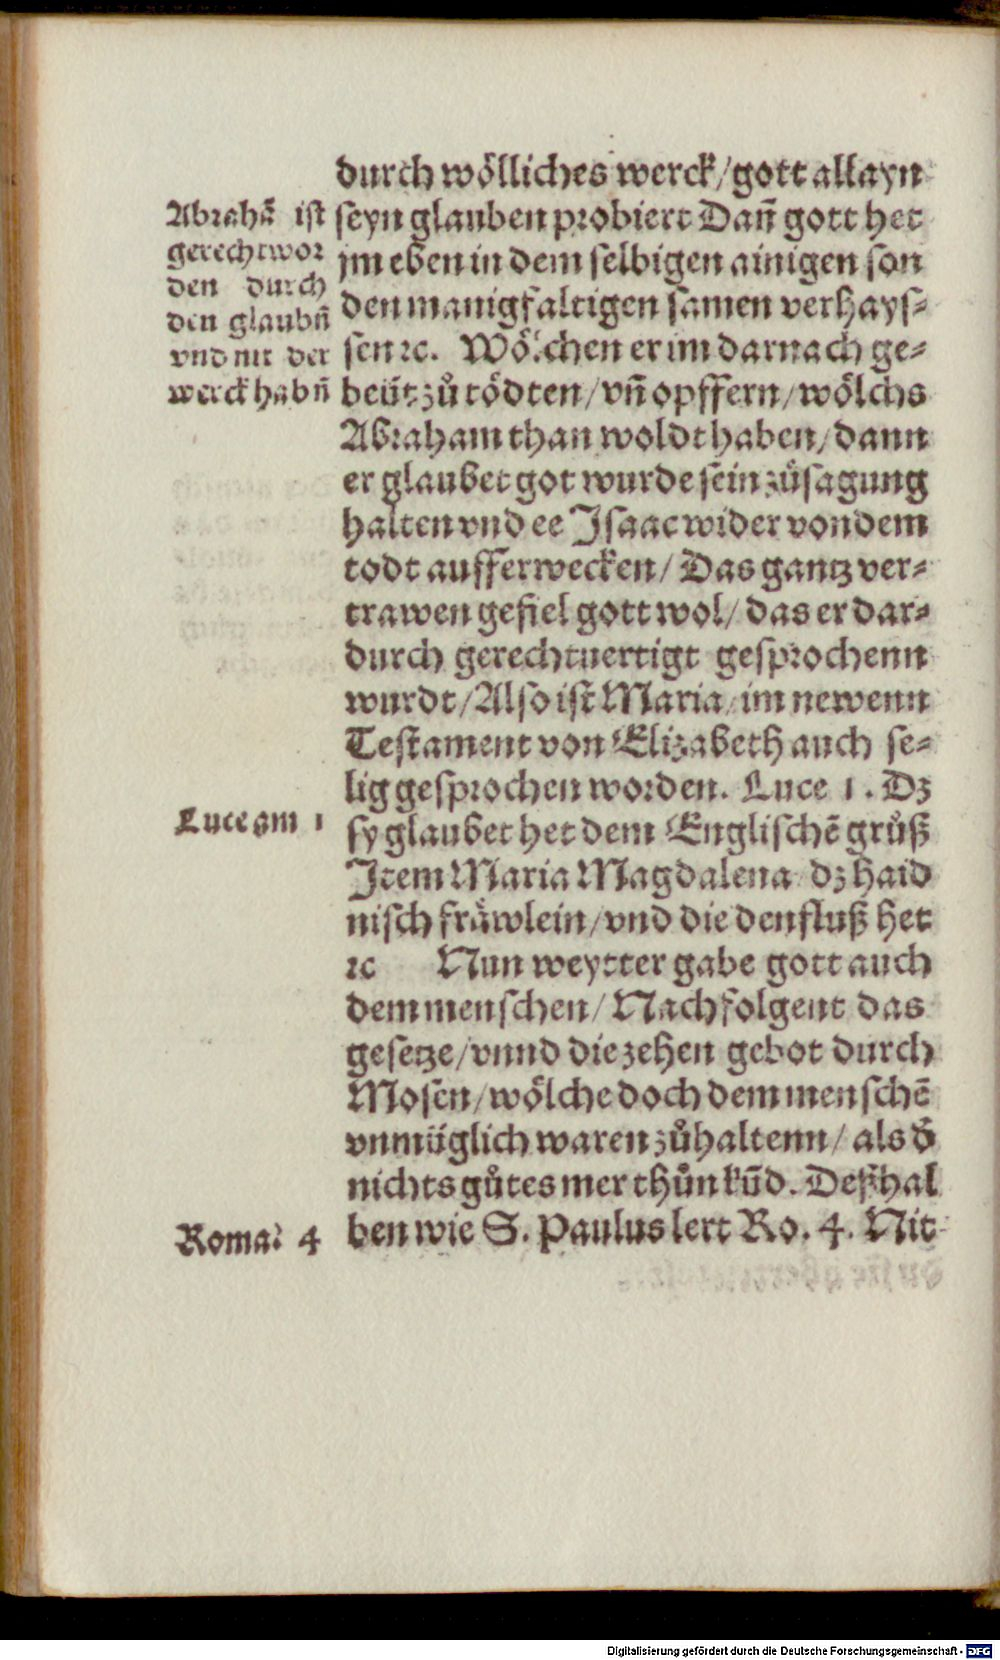 durch wölliches werck/gott allayn
seyn glauben probiert Dañ gott het
jm eben in dem selbigen ainigen son
den manigfaltigen samen verhays⸗
sen ꝛc. Wölchen er im darnach ge⸗
beüt zů tödten/vñ opffern/wölchs
Abraham than woldt haben/dann
er glaubet got wurde sein zůsagung
halten vnd ee Isaac wider von dem
todt aufferwecken/ Das gantz ver⸗
trawen gefiel gott wol/ das er dar⸗
durch gerechtuertigt gesprochenn
wurdt/Also ist Maria/im newenn
Testament von Elizabeth auch se⸗
lig gesprochen worden. Luce 1. Dz
sy glaubet het dem Englischẽ grůß
Item Maria Magdalena dz haid
nisch fräwlein/vnd die den fluß het
ꝛc Nun weytter gabe gott auch
dem menschen/ Nachfolgent das
gesetze/vnnd die zehen gebot durch
Mosen/wölche doch dem menschẽ
vnmüglich waren zůhaltenn/ als d̃
nichts gůtes mer thůn kũd. Deßhal
ben wie S. Paulus lert Ro. 4. Nit
Abrahã ist
gerecht wor
den durch
den glaubñ
vnd nit der
werck habñ
Luce am 1
Roma: 4
Digitalisierung gefördert durch die Deutsche Forschungsgemeinschaft - DFG